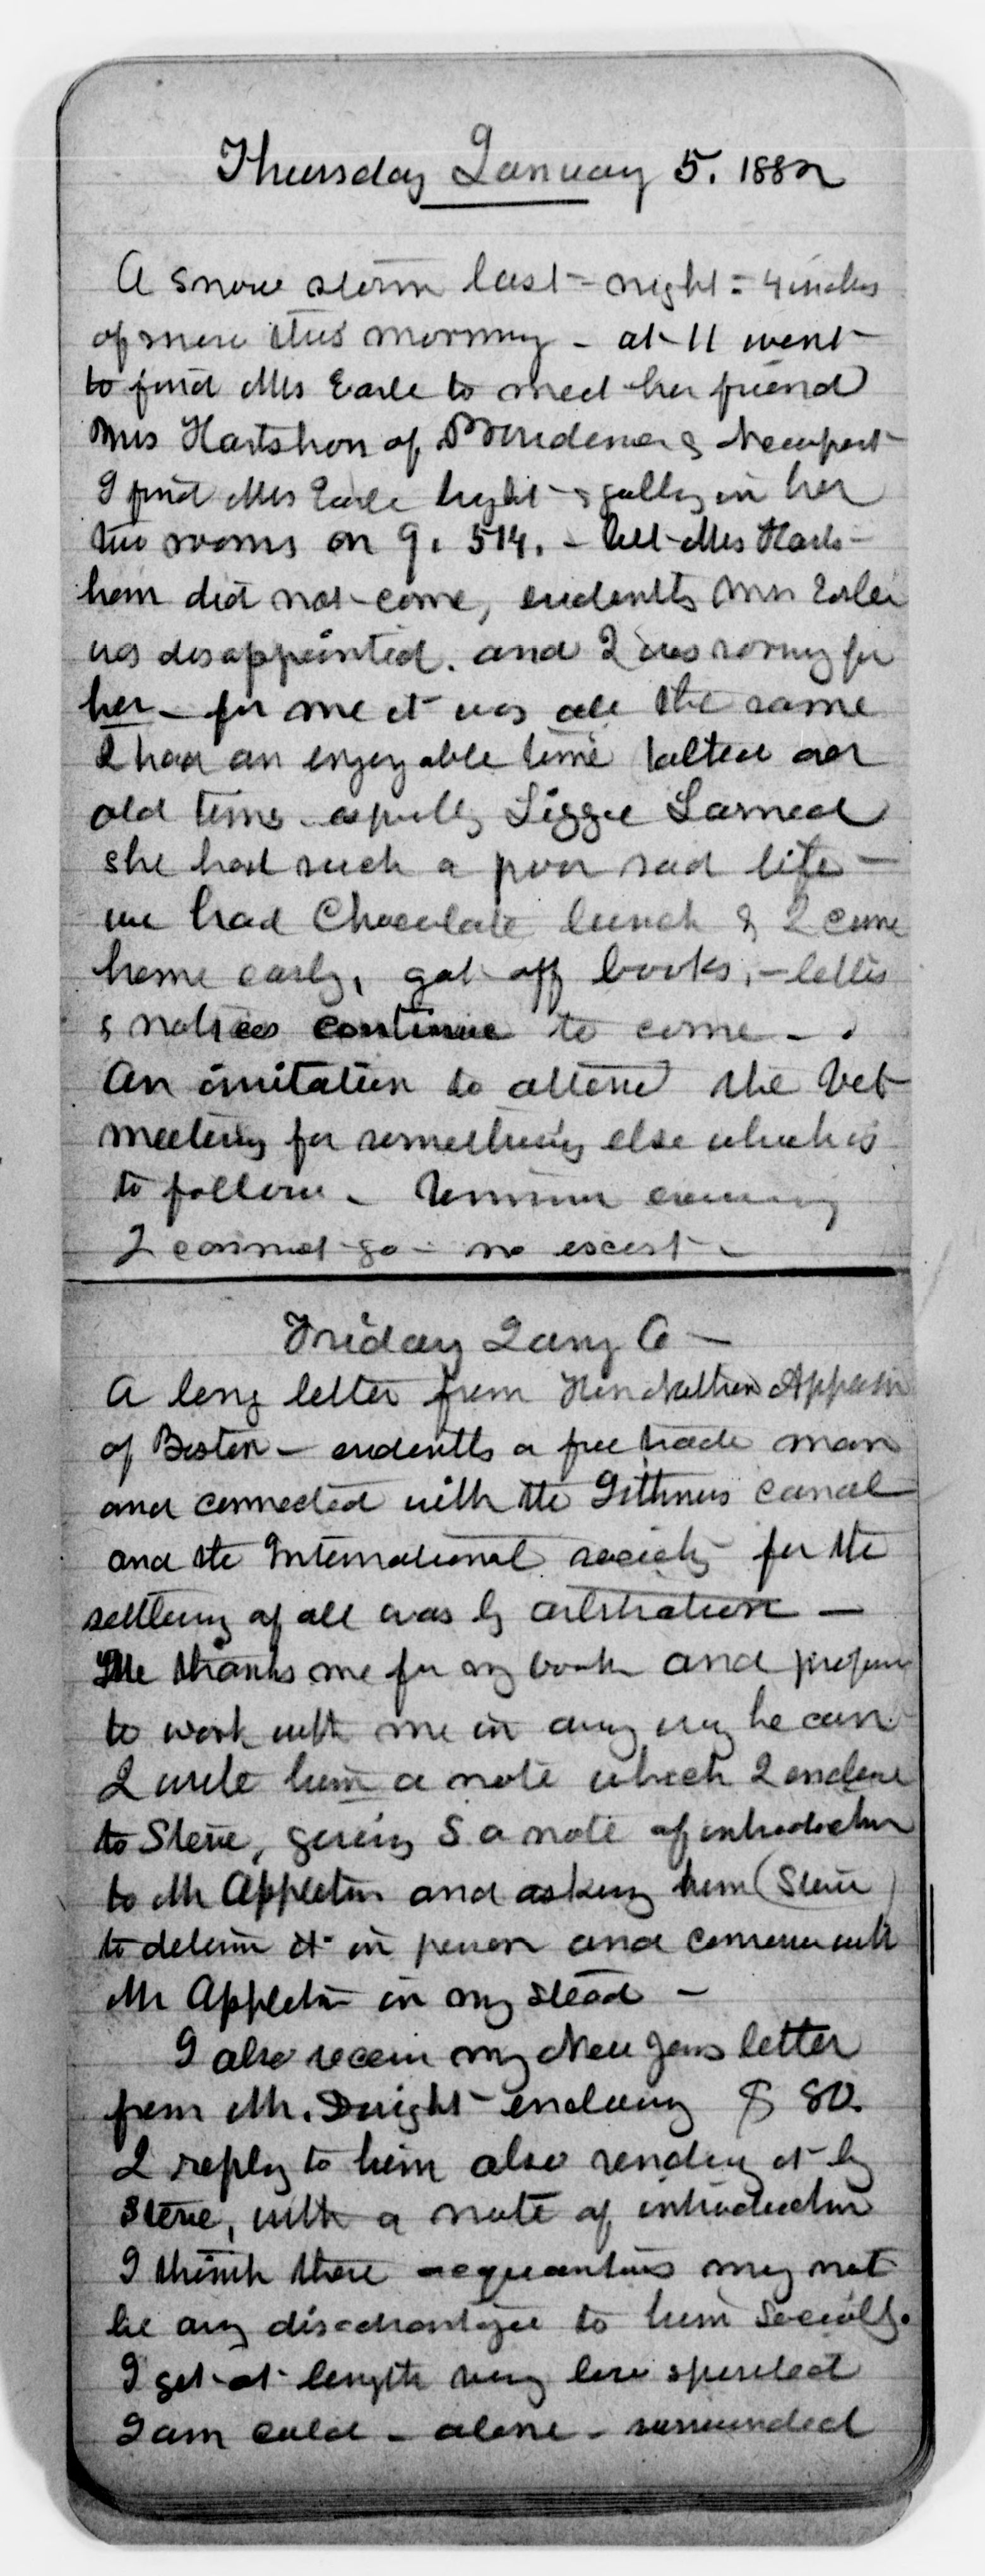 Thursday January 5. 1882
A snow storm last - night = 4 inches
of snow this morning - at 11 went
to find Mrs Earle to meet her friend
Mrs Hartshorn of Providence & Newport
I find Mrs Earle bright & in her
two rooms on 9. 514. - but Mrs Harts-
horn did not come, evidently Mrs Earle
was disappointed. and I was sorry for
her - for me it was all the same
I had an enjoyable time talked over
old times. espcelly Lizzie Larned
she had such a poor sad life -
we had Chocolate lunch & I came
home early, got off books, - letters
& notices continue to come -
An invitation to attend the
meeting for something else which is
to follow - evening
I cannot go - no escort -
Friday Jany 6 -
A long letter from Hon Nathan Appleton
of Boston - evidently a free trade man
and connected with the Isthmus canal
and the International society for the
settling of all wars by arbitration -
He thanks me for my book and proposes
to work with me in any way he can
I write him a note which I enclose
to Steve, giving S a note of introduction
to Mr Appleton and asking him (Steve)
to deliver it in person and converse with
Mr Appleton in my stead -
I also receive my New Years letter
from Mr. Dwight enclosing $ 80.
I reply to him also sending it by
Steve, with a note of introduction
I think these acquantans may not
be any disadvantage to him socially.
I get at length very low spirited
I am cold - alone - surrounded